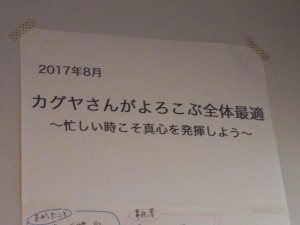 2017年8月
カグヤさんがよろこぶ全体最適
～忙しい時こそ真心を発揮しよう～